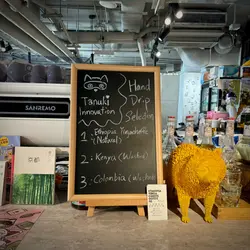 SANREMO
Tanuki
Innovation
Hand
Drip
Selection
1. Ethiopia Yirgacheffe
(Natural)
2. Kenya (Washed)
3. Colombia (Washed)
京都